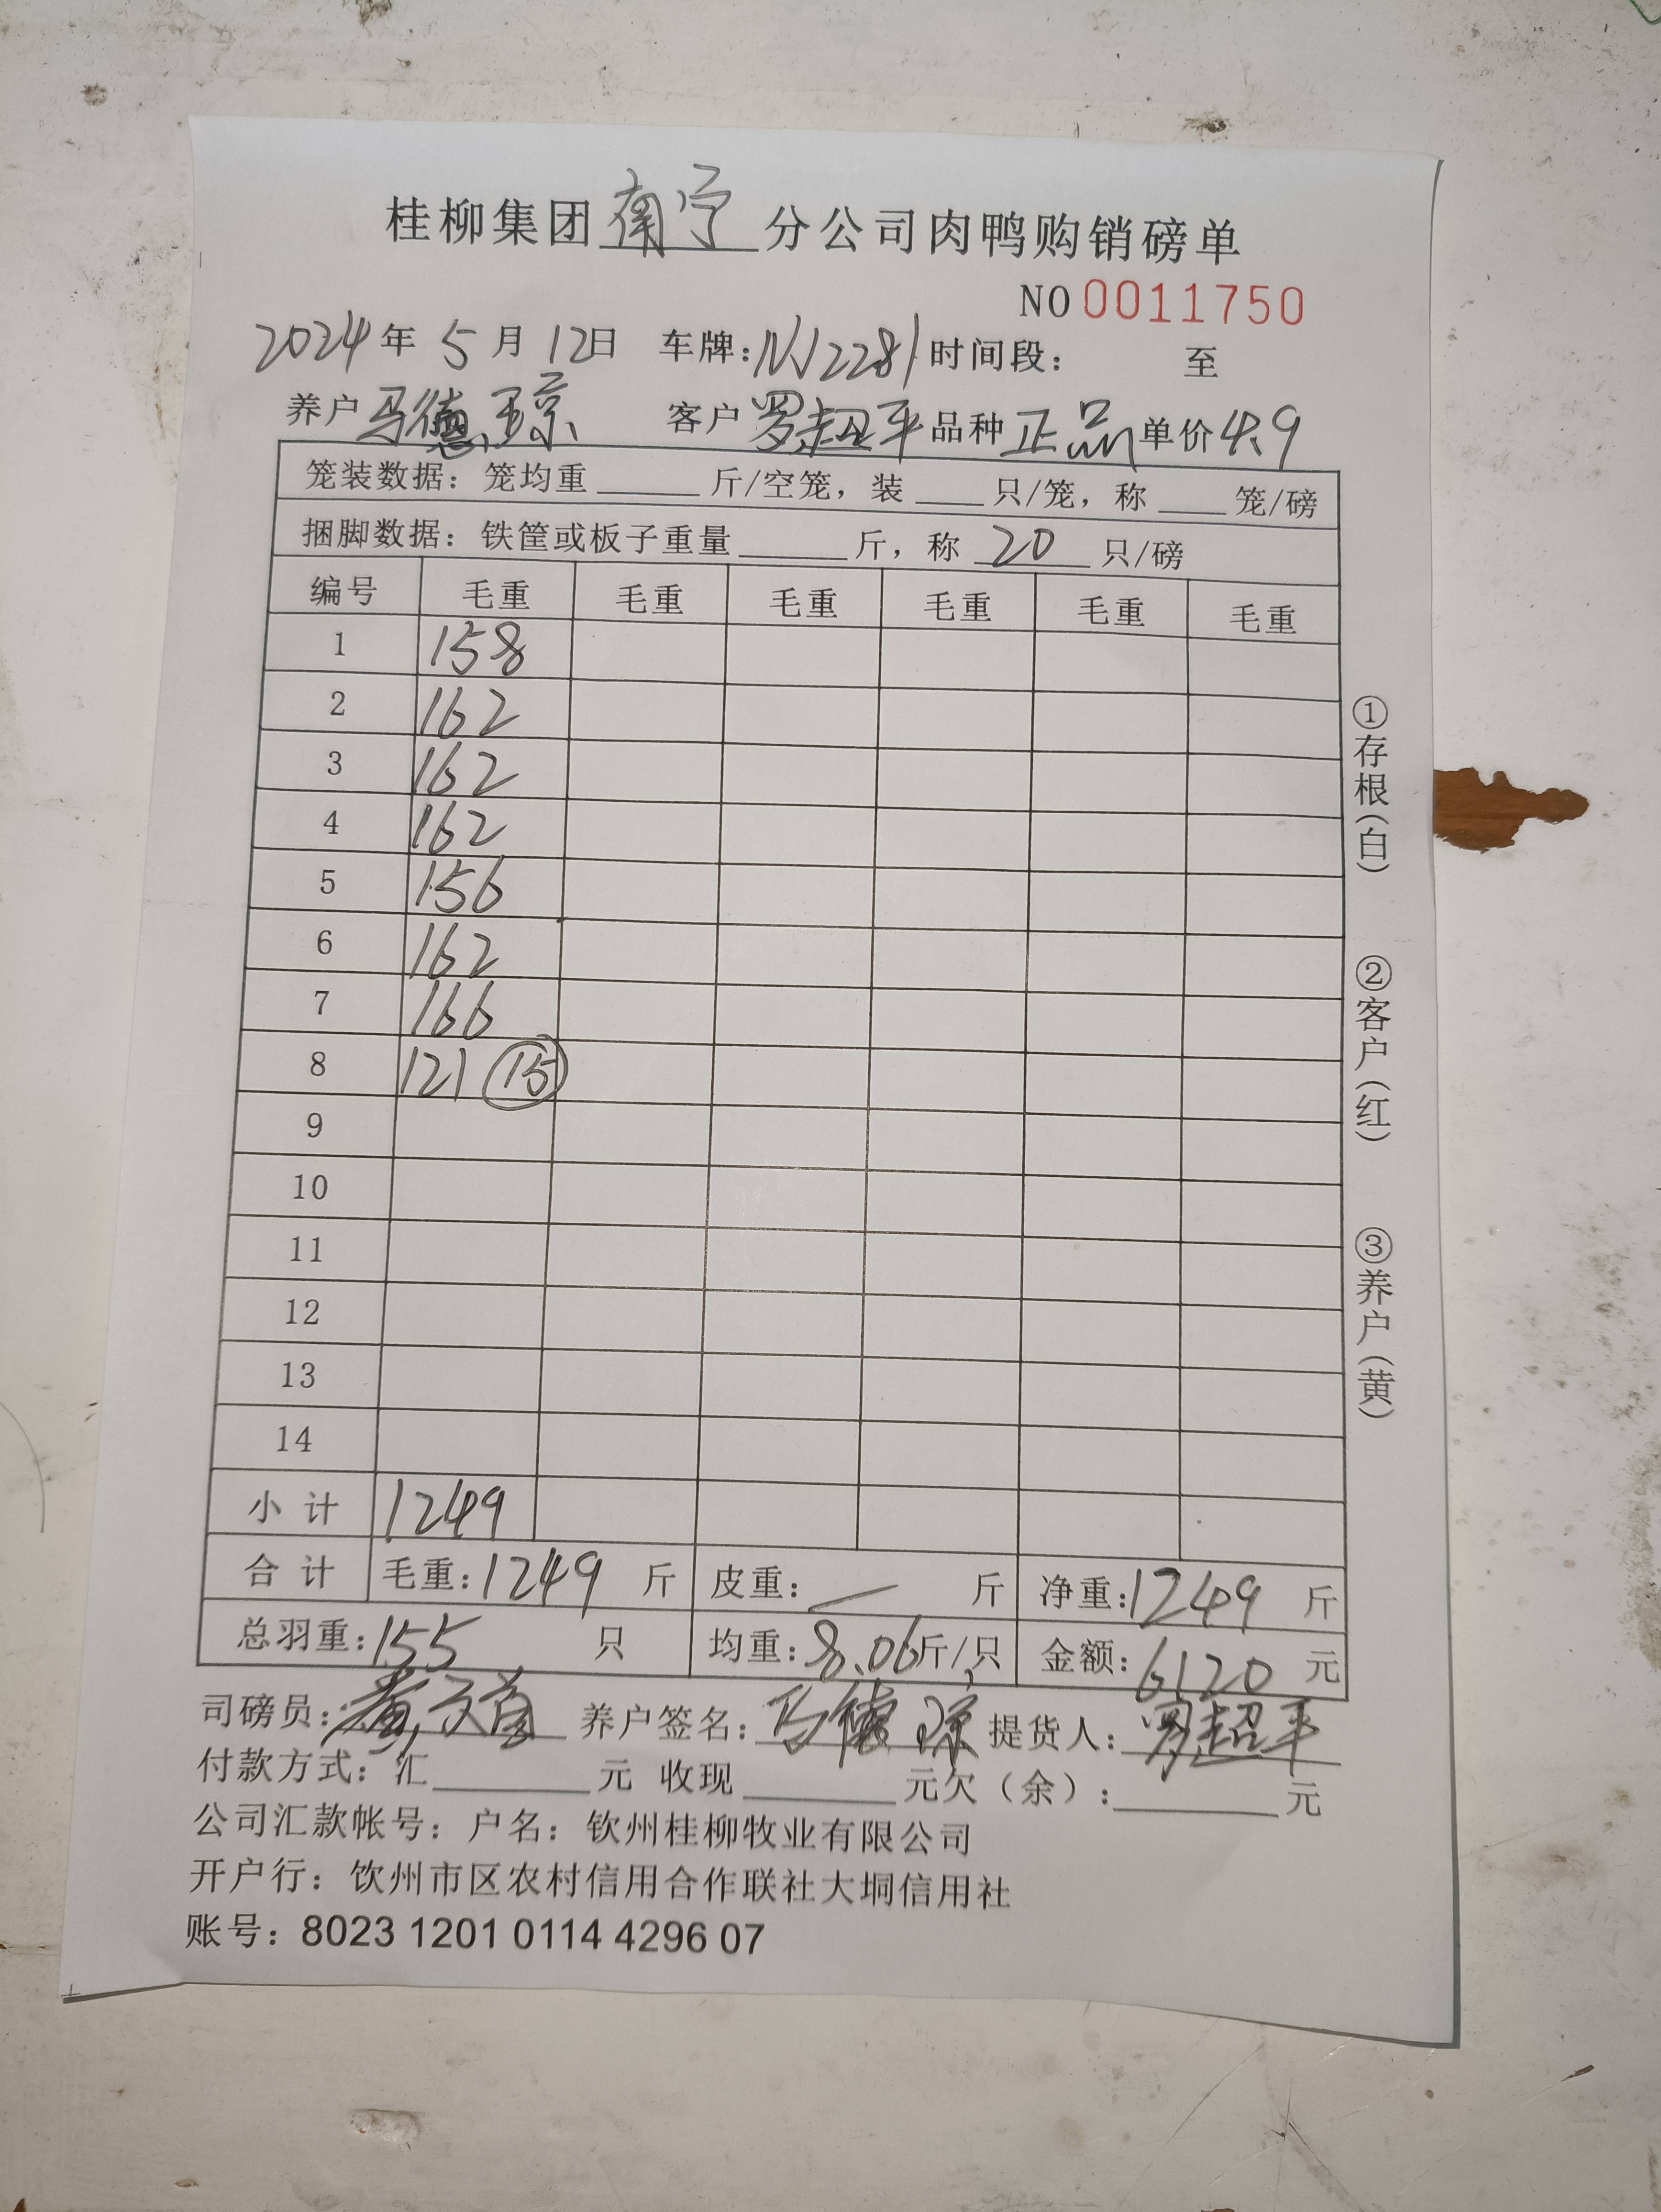 桂柳集团南宁分公司肉鸭购销磅单
NO 0011750
2024年 5月 12日 车牌：NJ2281 时间段： 至
养户 马德琼 客户 罗超平 品种 正品 单价 4.9
笼装数据：笼均重____斤/空笼，装____只/笼，称____笼/磅
捆脚数据：铁筐或板子重量____斤，称 20 只/磅
编号 毛重 毛重 毛重 毛重 毛重 毛重
1 158
2 162
3 162
4 162
5 156
6 162
7 166
8 121 ⑮
9
10
11
12
13
14
小计 1249
合计 毛重：1249 斤 皮重：— 斤 净重：1249 斤
总羽重：155 只 均重：8.06斤/只 金额：6120 元
司磅员：黄 养户签名：马德琼 提货人：罗超平
付款方式：汇____元 收现____元欠（余）：____元
公司汇款帐号：户名：钦州桂柳牧业有限公司
开户行：钦州市区农村信用合作联社大垌信用社
账号：8023 1201 0114 4296 07
①存根（白）
②客户（红）
③养户（黄）